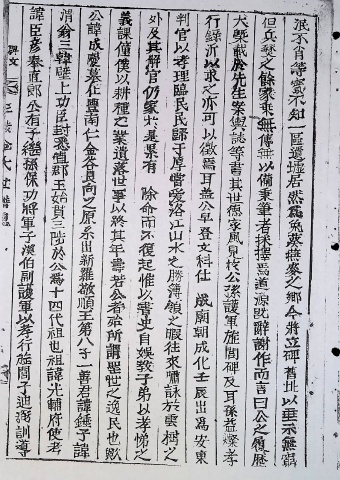 泯不肖等實不知一區遺墟居然爲兎葵燕麥之鄕今將立碑舊址以垂示無窮
但兵燹之餘家乘無傳無以備秉筆者採擇焉道源旣辭謝作而言曰公之履歷
大槩載於先生案輿誌等書其世德家風見於公潔護軍旌閭碑及耳孫益燦孝
行錄沂以求之亦可以徵焉耳盖公早登文科仕 歲廟朝成化壬辰出爲安東
判官以孝理臨民民歸于厚嘗愛洛江山水之勝簿領之暇往來嘯詠於雲樹之
外及其解官仍家於 果有 除命而不復起惟以書史自娛敎子弟以孝悌之
義課僮僕以耕種之業遺落世事以終其年壽若公者殆所謂聖世之逸民也歟
公諱成慶墓在豊南仁金谷艮向之原系出新羅敬順王第八子一善君諱錘子諱
渭翁三韓壁上功臣封悉直郡王始貫三陟於公爲十四代祖也祖諱光輔府使考
諱臣彥奉直郞公有子繼孫保功將軍子漢伯副護軍以孝行旌閭子迪 訓導